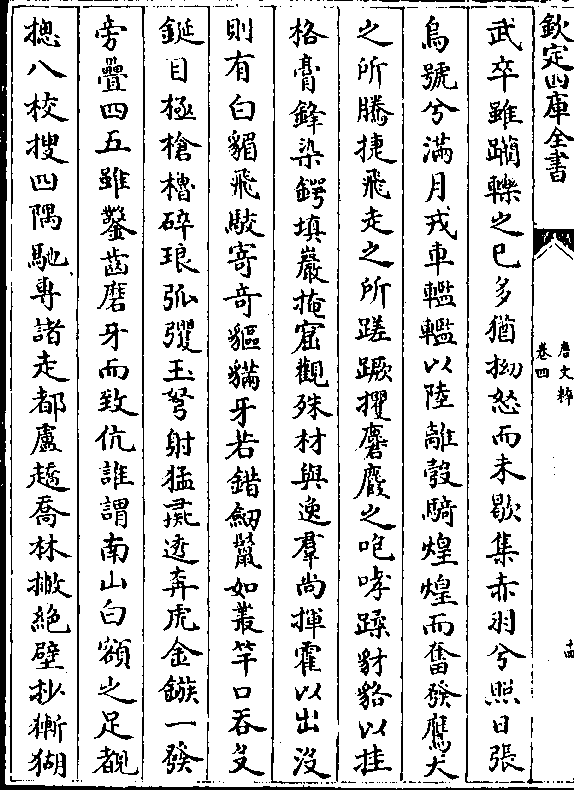 欽定四庫全書
唐文粹
卷四
十四
武卒雖躪轢之已多猶拗怒而未歇集赤羽兮照日張
烏號兮滿月戎車轞轞以陸離彀騎煌煌而奮發鷹犬
之所騰捷飛走之所蹉蹶攫麏麚之咆哮蹂豺貉以挂
格膏鋒染鍔填巖掩窟觀殊材與逸羣尚揮霍以出沒
則有白貑飛駮奇貙貓牙若錯劒鬛如叢竿口吞殳
鋋目極槍櫓碎琅弧攫玉弩射猛彘透奔虎金鏃一發
旁疊四五雖鑿齒磨牙而致伉誰謂南山白額之足覩
摠八校搜四隅馳專諸走都盧趫喬林撇絕壁抄獑猢